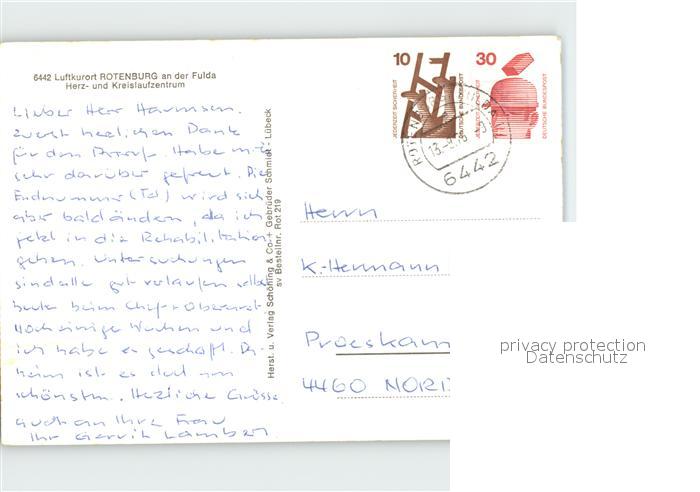 6442 Luftkurort ROTENBURG an der Fulda
Herz- und Kreislaufzentrum
Lieber Herr Harmsen.
zuerst herzlichen Dank
für den Anruf. Habe mich
sehr darüber gefreut. Die
Endnummer (Tel) wird sich
aber bald ändern, da ich
jetzt in die Rehabilitation
gehen. Untersuchungen
sind alle gut verlaufen selbst
heute beim Chef + Oberarzt
Noch einige Wochen und
ich habe es geschafft. Da-
heim ist es doch am
schönsten. Herzliche Grüsse
auch an Ihre Frau
Ihr Gerrit Lambers
Herst. u. Verlag Schöning & Co + Gebrüder Schmidt · Lübeck
sv Bestellnr. Rot 219
10
JEDERZEIT SICHERHEIT
DEUTSCHE BUNDESPOST
30
JEDERZEIT SICHERHEIT
DEUTSCHE BUNDESPOST
6442
Herrn
K.-Hermann
Proeskam
4460 NORD
privacy protection
Datenschutz